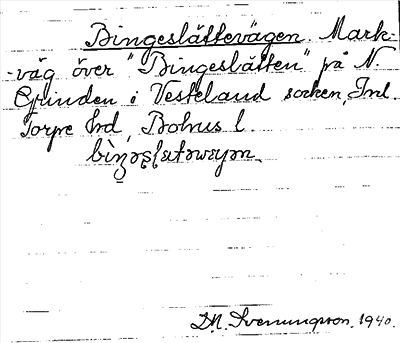 Bingeslättevägen. Mark-
-väg över "Bingeslätten" på N.
Grinden i Vesteland socken, Inl.
Torpe hrd, Bohus l.

D.N. Svenungsson. 1940.